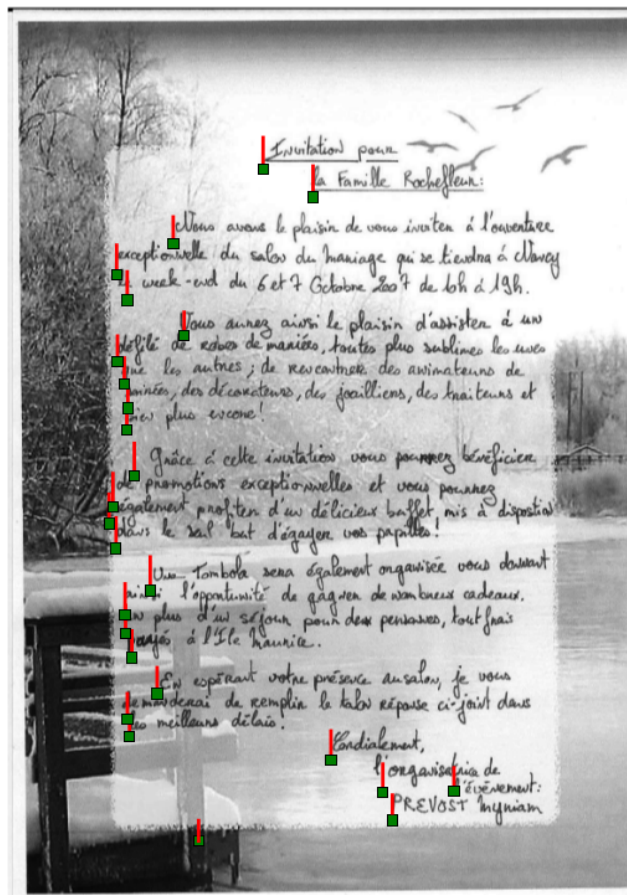 Invitation pour
la Famille Rochefleur:
Nous avons le plaisir de vous inviter à l'ouverture
exceptionnelle du salon du mariage qui se tiendra à Nancy
le week-end du 6 et 7 Octobre 2007 de 10h à 19h.
Vous aurez ainsi le plaisir d'assister à un
défilé de robes de mariées, toutes plus sublimes les unes
que les autres; de rencontrer des animateurs de
soirées, des décorateurs, des joailliers, des traiteurs et
bien plus encore!
Grâce à cette invitation vous pourrez bénéficier
de promotions exceptionnelles et vous pourrez
également profiter d'un délicieux buffet mis à dispostion
dans le seul but d'égayer vos papilles!
Une Tombola sera également organisée vous donnant
ainsi l'opportunité de gagner de nombreux cadeaux.
En plus d'un séjour pour deux personnes, tout frais
payés à l'Ile Maurice.
En espérant votre présence au salon, je vous
demanderai de remplir le talon réponse ci-joint dans
les meilleurs délais.
Cordialement,
l'organisatrice de
l'évènement:
PREVOST Myriam